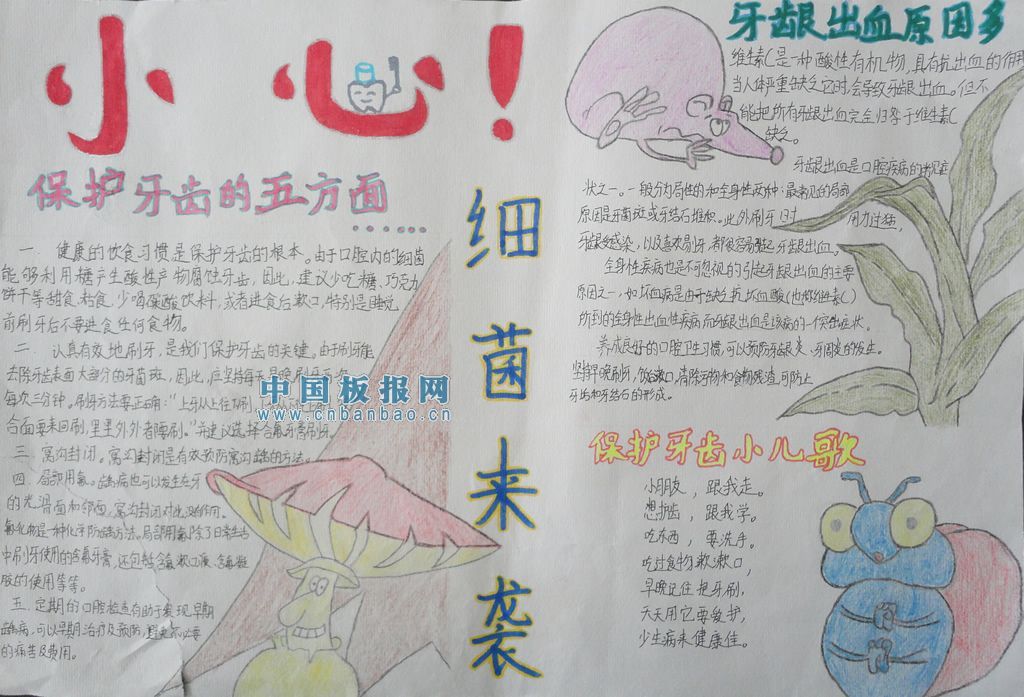 小心！
细菌来袭
保护牙齿的五方面
一 健康的饮食习惯是保护牙齿的根本。由于口腔内的细菌
能够利用糖产生酸性产物腐蚀牙齿，因此，建议少吃糖、巧克力
饼干等甜食、粘食，少喝碳酸饮料，或者进食后漱口，特别是睡觉
前刷牙后不要进食任何食物。
二、认真有效地刷牙，是我们保护牙齿的关键。由于刷牙能
去除牙齿表面大部分的牙菌斑，因此，应坚持每天早晚刷牙
每次三分钟。刷牙方法要正确："上牙从上往下刷，
合面要来回刷，里里外外都要刷。"并建议选择含氟牙膏刷牙。
三、窝沟封闭。窝沟封闭是有效预防窝沟龋的方法。
四、局部用氟。龋病也可以发生在牙
的光滑面和邻面，窝沟封闭对此没作用。
氟化物是一种化学防龋方法。局部用氟除了日常生活
中刷牙使用的含氟牙膏，还包括含氟漱口液、含氟凝
胶的使用等等。
五、定期的口腔检查有助于发现早期
龋病，可以早期治疗及预防，避免不必要
的痛苦及费用。
中国板报网
www.cnbanbao.cn
牙龈出血原因多
维生素C是一种酸性有机物，具有抗出血的作用
当人体严重缺乏它时，会导致牙龈出血。但不
能把所有牙龈出血完全归咎于维生素C
缺乏。
牙龈出血是口腔疾病的常见症
状之一。一般分为局性的和全身性两种：最常见的局部
原因是牙菌斑或牙结石堆积。此外刷牙时 用力过猛，
牙龈感染，以及喜欢剔牙，都很容易引起牙龈出血。
全身性疾病也是不可忽视的引起牙龈出血的主要
原因之一，如坏血病是由于缺乏抗坏血酸（也称维素C）
所到的全身性出血性疾病而牙龈出血是该病的一个突出症状。
养成良好的口腔卫生习惯，可以预防牙龈炎、牙周炎的发生。
坚持早晚刷牙，饭后漱口，清除污物和食物残渣，可防止
牙齿和牙结石的形成。
保护牙齿小儿歌
小朋友，跟我走。
想护齿，跟我学。
吃东西，要洗手。
吃过食物漱漱口，
早晚记住把牙刷，
天天用它要爱护，
少生病来健康佳。